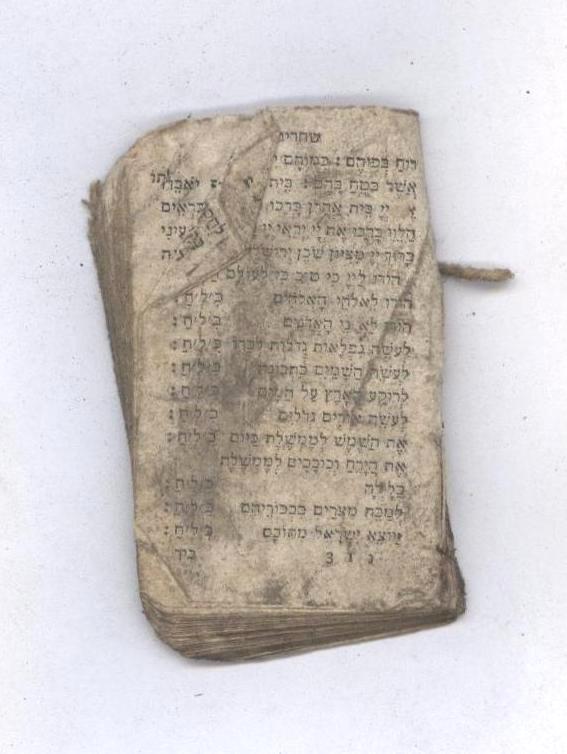 שחרית
רוּחַ בְּפִיהֶם: כְּמוֹהֶם י
אֲשֶׁר בֹּטֵחַ בָּהֶם: בֵּית
יְיָ בֵּית אַהֲרֹן בָּרְכוּ
הַלֵּוִי בָּרְכוּ אֶת יְיָ יִרְאֵי יְיָ
בָּרוּךְ יְיָ מִצִּיּוֹן שֹׁכֵן
הוֹדוּ לַיְיָ כִּי טוֹב כִּי לְעוֹלָם
הוֹדוּ לֵאלֹהֵי הָאֱלֹהִים כִּ׳לְ׳חַ׳:
הוֹדוּ הָאֲדֹנִים כִּ׳לְ׳חַ׳:
לְעֹשֵׂה נִפְלָאוֹת גְּדֹלוֹת לְבַדּוֹ כִּ׳לְ׳חַ׳:
לְעֹשֵׂה הַשָּׁמַיִם בִּתְבוּנָה כִּ׳לְ׳חַ׳:
לְרוֹקַע הָאָרֶץ עַל הַמָּיִם כִּ׳לְ׳חַ׳:
לְעֹשֵׂה אוֹרִים גְּדֹלִים כִּ׳לְ׳חַ׳:
אֶת הַשֶּׁמֶשׁ לְמֶמְשֶׁלֶת בַּיּוֹם כִּ׳לְ׳חַ׳:
אֶת הַיָּרֵחַ וְכוֹכָבִים לְמֶמְשְׁלֹת
בַּלָּיְלָה כִּ׳לְ׳חַ׳:
לְמַכֵּה מִצְרַיִם בִּבְכוֹרֵיהֶם כִּ׳לְ׳חַ׳:
וַיּוֹצֵא יִשְׂרָאֵל מִתּוֹכָם כִּ׳לְ׳חַ׳:
ביד